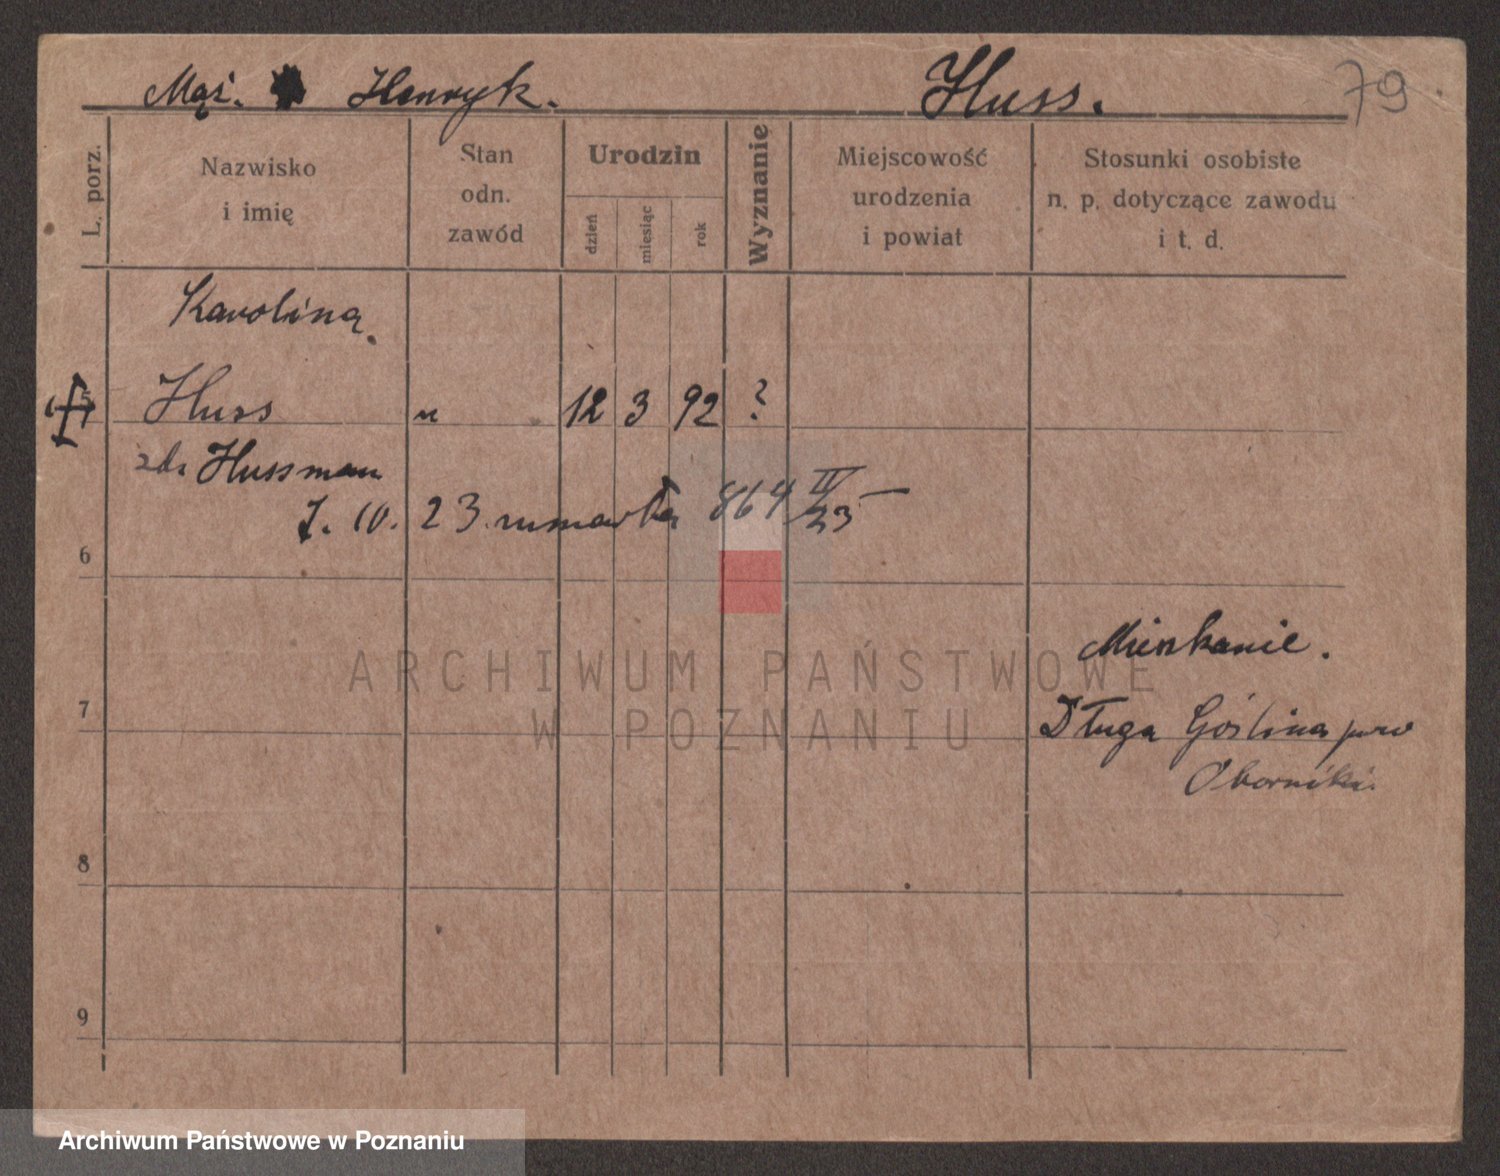 Mąż. Henryk. Huss. 79
L. porz.
Nazwisko
i imię
Stan
odn.
zawód
Urodzin
dzień
miesiąc
rok
Wyznanie
Miejscowość
urodzenia
i powiat
Stosunki osobiste
n. p. dotyczące zawodu
i t. d.
Karolina
5 Huss " 12 3 92 ?
Hussman
J. 10. 23. zumarła 864 II/23 —
6
Mieszkanie.
7
Długa Goślina pow
Oborniki.
8
9
ARCHIWUM PAŃSTWOWE
W POZNANIU
Archiwum Państwowe w Poznaniu